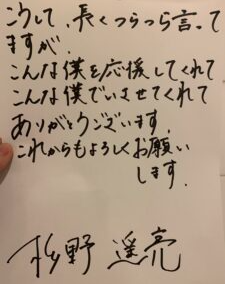 こうして、長くつらつら言って
ますが、
こんな僕を応援してくれて
こんな僕でいさせてくれて
ありがとうございます。
これからもよろしくお願い
します。
杉野 遥亮